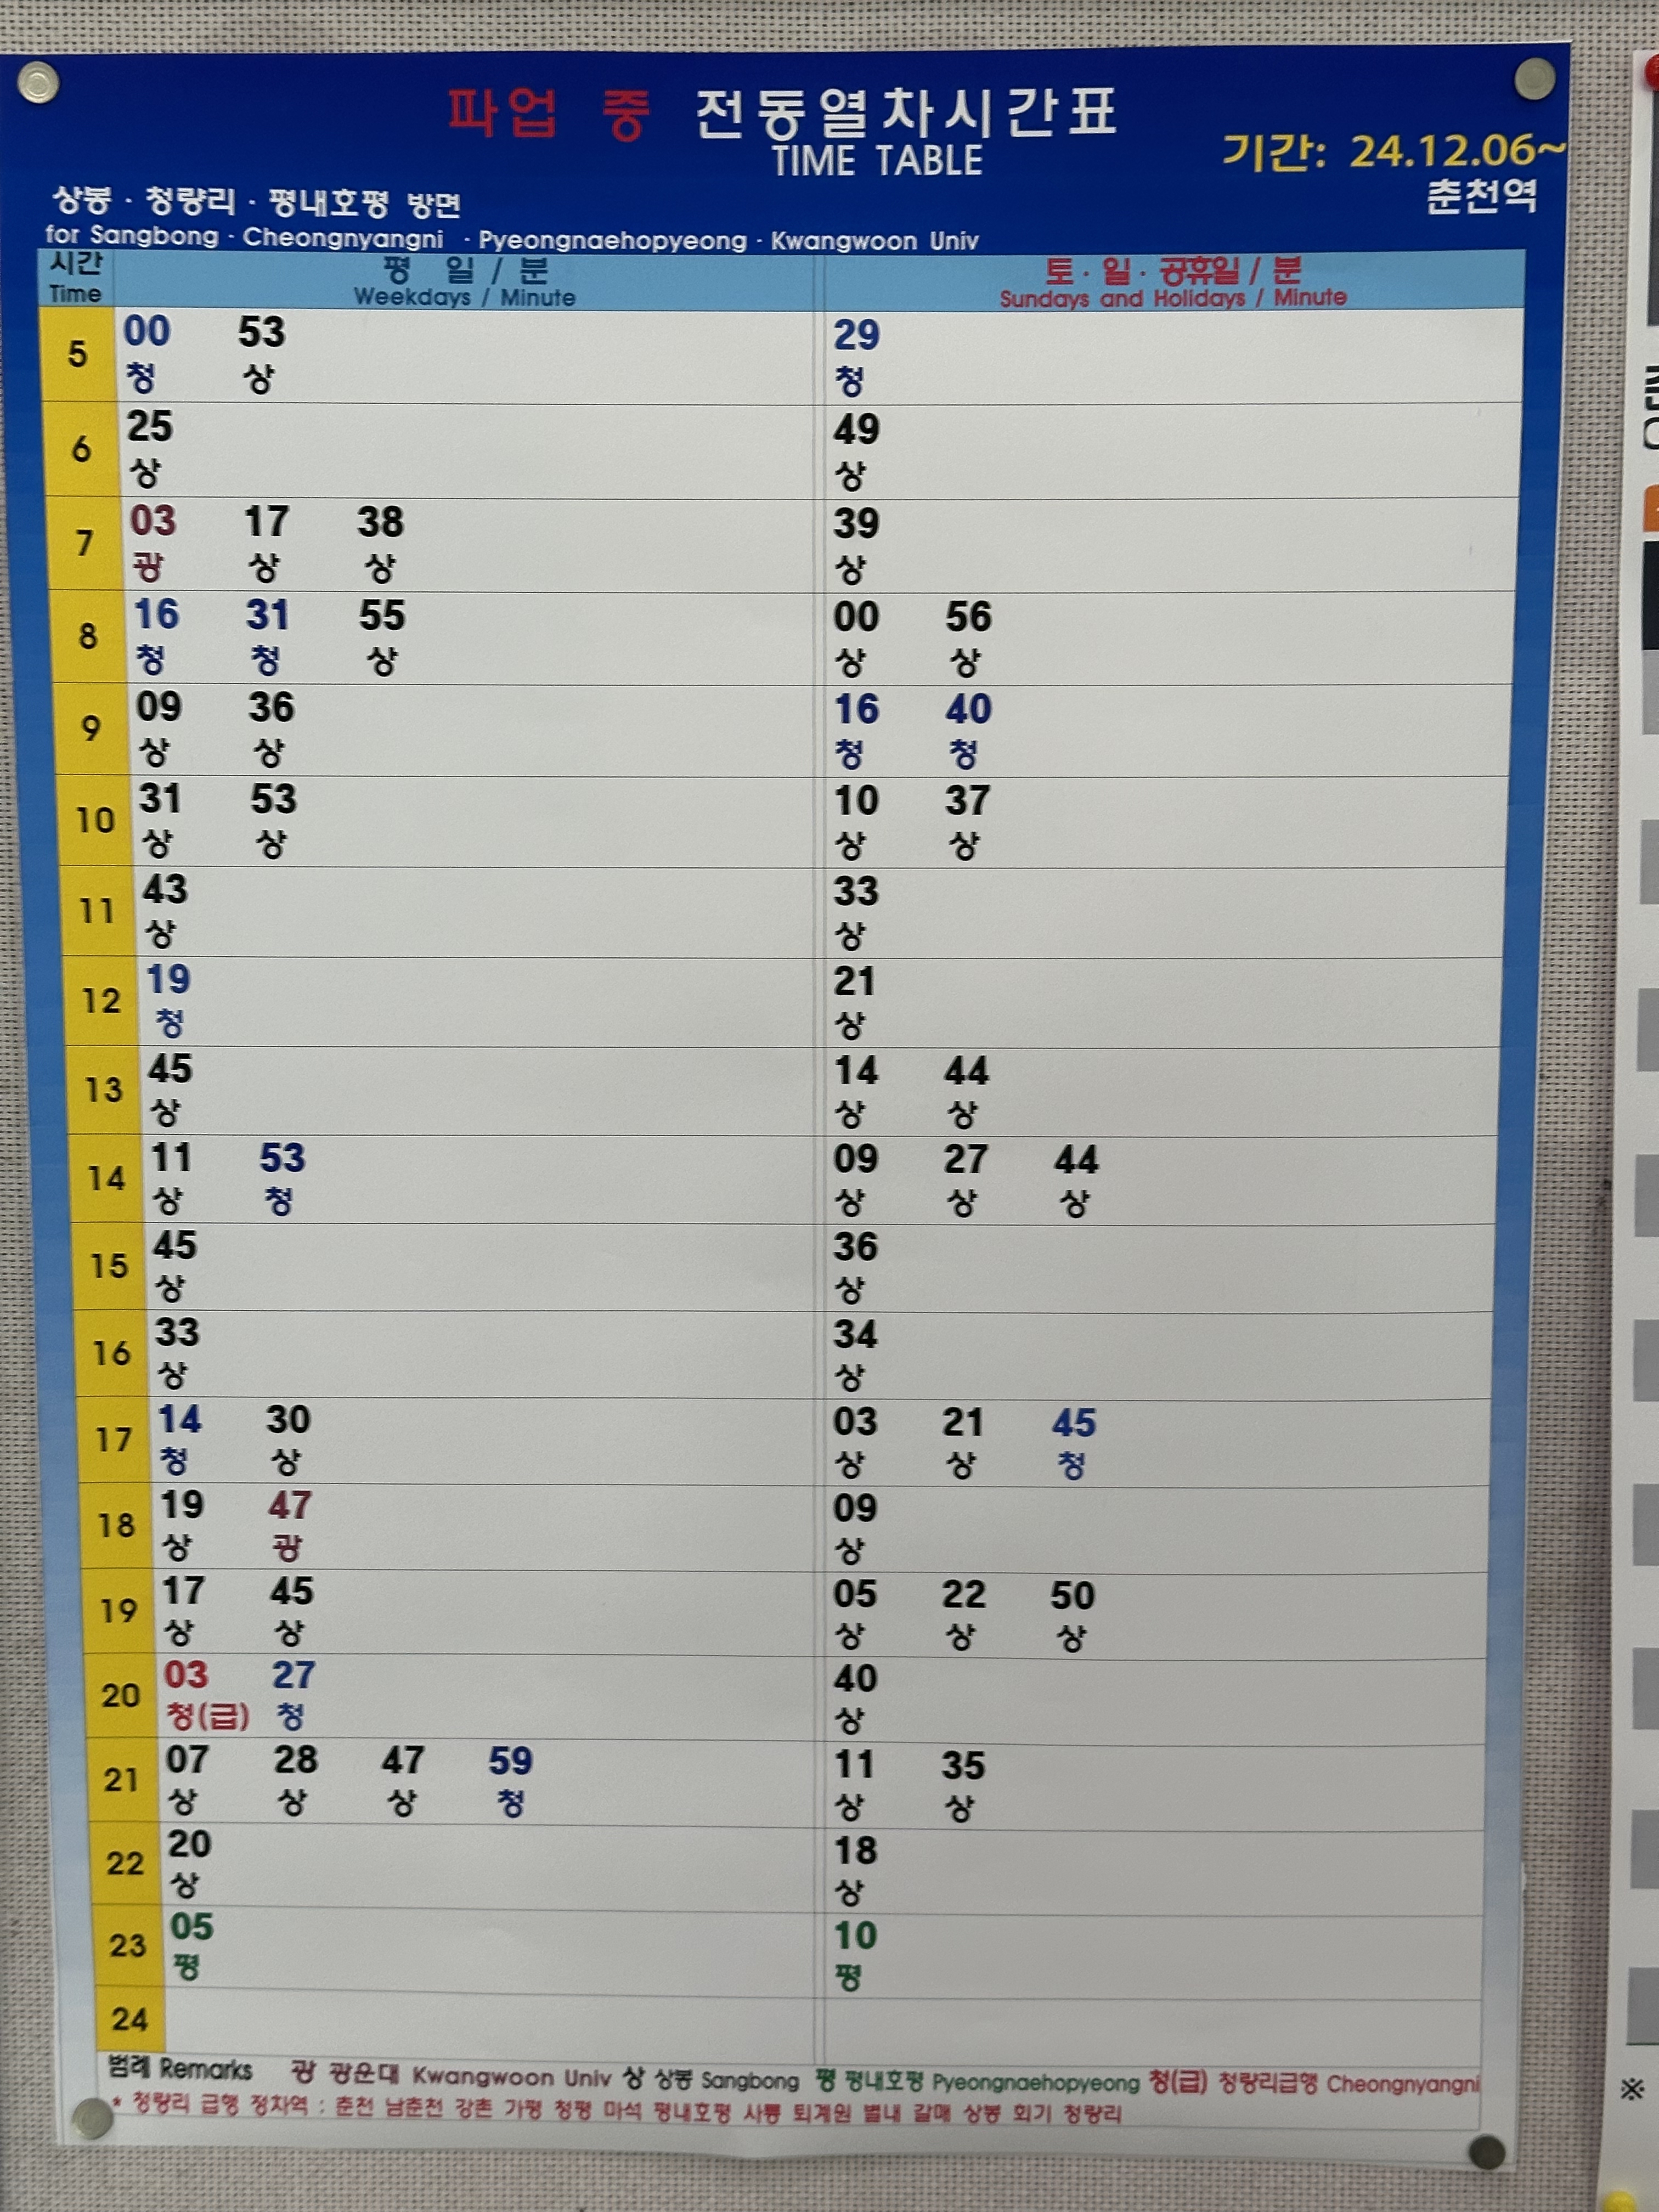 파업 중 전동열차시간표
TIME TABLE
기간: 24.12.06~
춘천역
상봉 · 청량리 · 평내호평 방면
for Sangbong · Cheongnyangni · Pyeongnaehopyeong · Kwangwoon Univ
시간 평 일 / 분 토 · 일 · 공휴일 / 분
Time Weekdays / Minute Sundays and Holidays / Minute
5 00 53 29
청 상 청
6 25 49
상 상
7 03 17 38 39
광 상 상 상
8 16 31 55 00 56
청 청 상 상 상
9 09 36 16 40
상 상 청 청
10 31 53 10 37
상 상 상 상
11 43 33
상 상
12 19 21
청 상
13 45 14 44
상 상 상
14 11 53 09 27 44
상 청 상 상 상
15 45 36
상 상
16 33 34
상 상
17 14 30 03 21 45
청 상 상 상 청
18 19 47 09
상 광 상
19 17 45 05 22 50
상 상 상 상 상
20 03 27 40
청(급) 청 상
21 07 28 47 59 11 35
상 상 상 청 상 상
22 20 18
상 상
23 05 10
평 평
24
범례 Remarks 광 광운대 Kwangwoon Univ 상 상봉 Sangbong 평 평내호평 Pyeongnaehopyeong 청(급) 청량리급행 Cheongnyangni
* 청량리 급행 정차역 : 춘천 남춘천 강촌 가평 청평 마석 평내호평 사릉 퇴계원 별내 갈매 상봉 회기 청량리
※